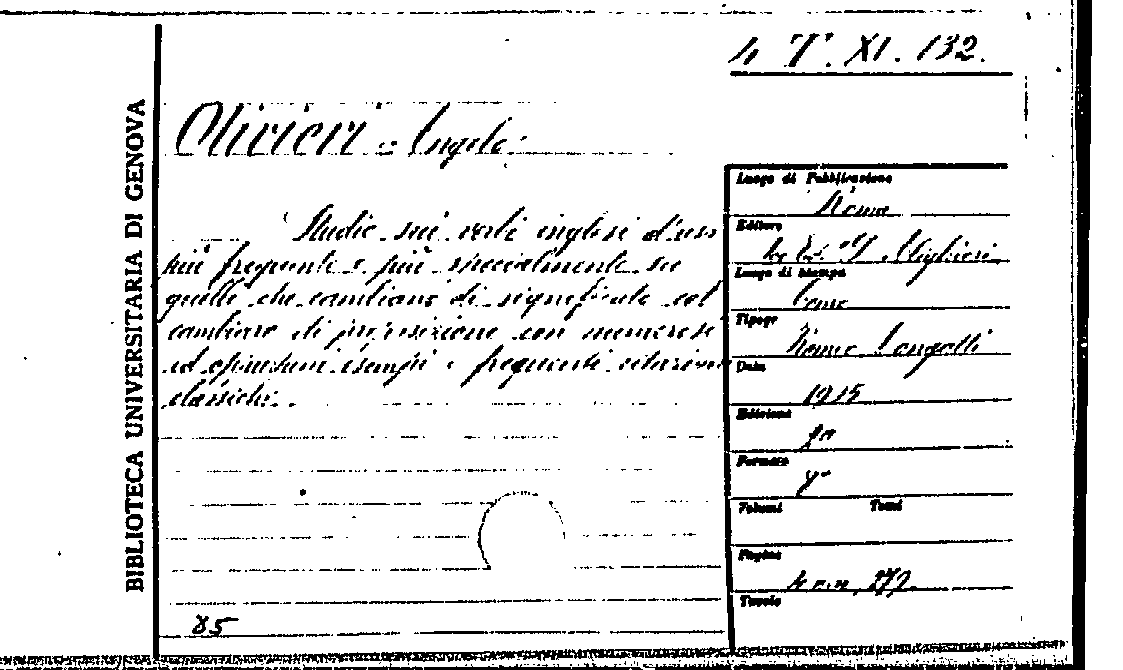 4 T. XI. 132.
BIBLIOTECA UNIVERSITARIA DI GENOVA
Olivieri Angelo
Studio sui verbi inglesi d'uso
più frequente e più specialmente su
quelli che cambiano di significato col
cambiare di preposizione con numerosi
ed opportuni esempi e frequenti citazioni
classiche.
85
Luogo di Pubblicazione
Roma
Editore
Miglieri
Luogo di stampa
Roma
Tipogr
Longatti
Data
1915
Edizione
Formato
8°
Volumi Tomi
Pagine
4 c.n. 277.
Tavole